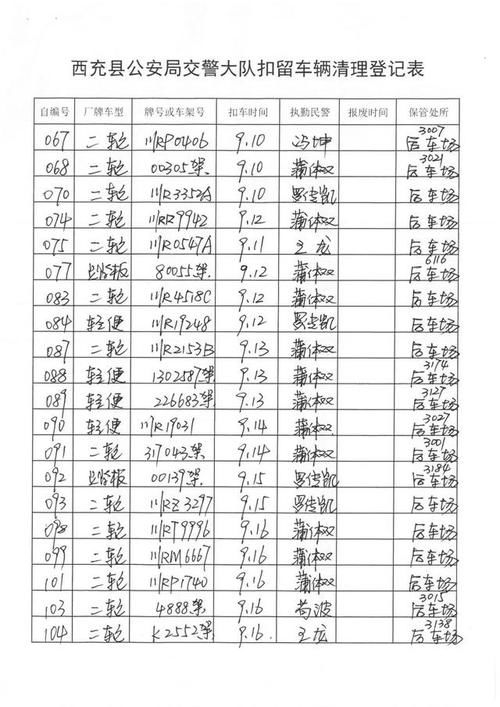 西充县公安局交警大队扣留车辆清理登记表
自编号 厂牌车型 牌号或车架号 扣车时间 执勤民警 报废时间 保管处所
067 二轮 川RP0406 9.10 冯坤 3007 后车场
068 二轮 00305架 9.10 蒲体双 3021 后车场
070 二轮 川R3352A 9.10 罗传凯 后车场
074 二轮 川RR9942 9.12 蒲体双 后车场
075 二轮 川R0547A 9.11 王龙 后车场
077 踏板 80055架 9.12 蒲体双 6116 后车场
083 二轮 川R4518C 9.12 蒲体双 后车场
084 轻便 川R19248 9.12 罗传凯 后车场
087 二轮 川R2153B 9.13 蒲体双 后车场
088 轻便 1302587架 9.13 蒲体双 3174 后车场
089 轻便 226683架 9.13 蒲体双 3127 后车场
090 轻便 川R19031 9.14 蒲体双 3027 后车场
091 二轮 317043架 9.14 蒲体双 3001 后车场
092 踏板 00139架 9.15 罗传凯 3184 后车场
093 二轮 川RZ3297 9.15 罗传凯 后车场
098 二轮 川RT9996 9.16 蒲体双 后车场
099 二轮 川RM6667 9.16 蒲体双 后车场
101 二轮 川RP1740 9.16 蒲体双 后车场
103 二轮 4888架 9.16 苟波 3015 后车场
104 二轮 K2552架 9.16 王龙 3138 后车场